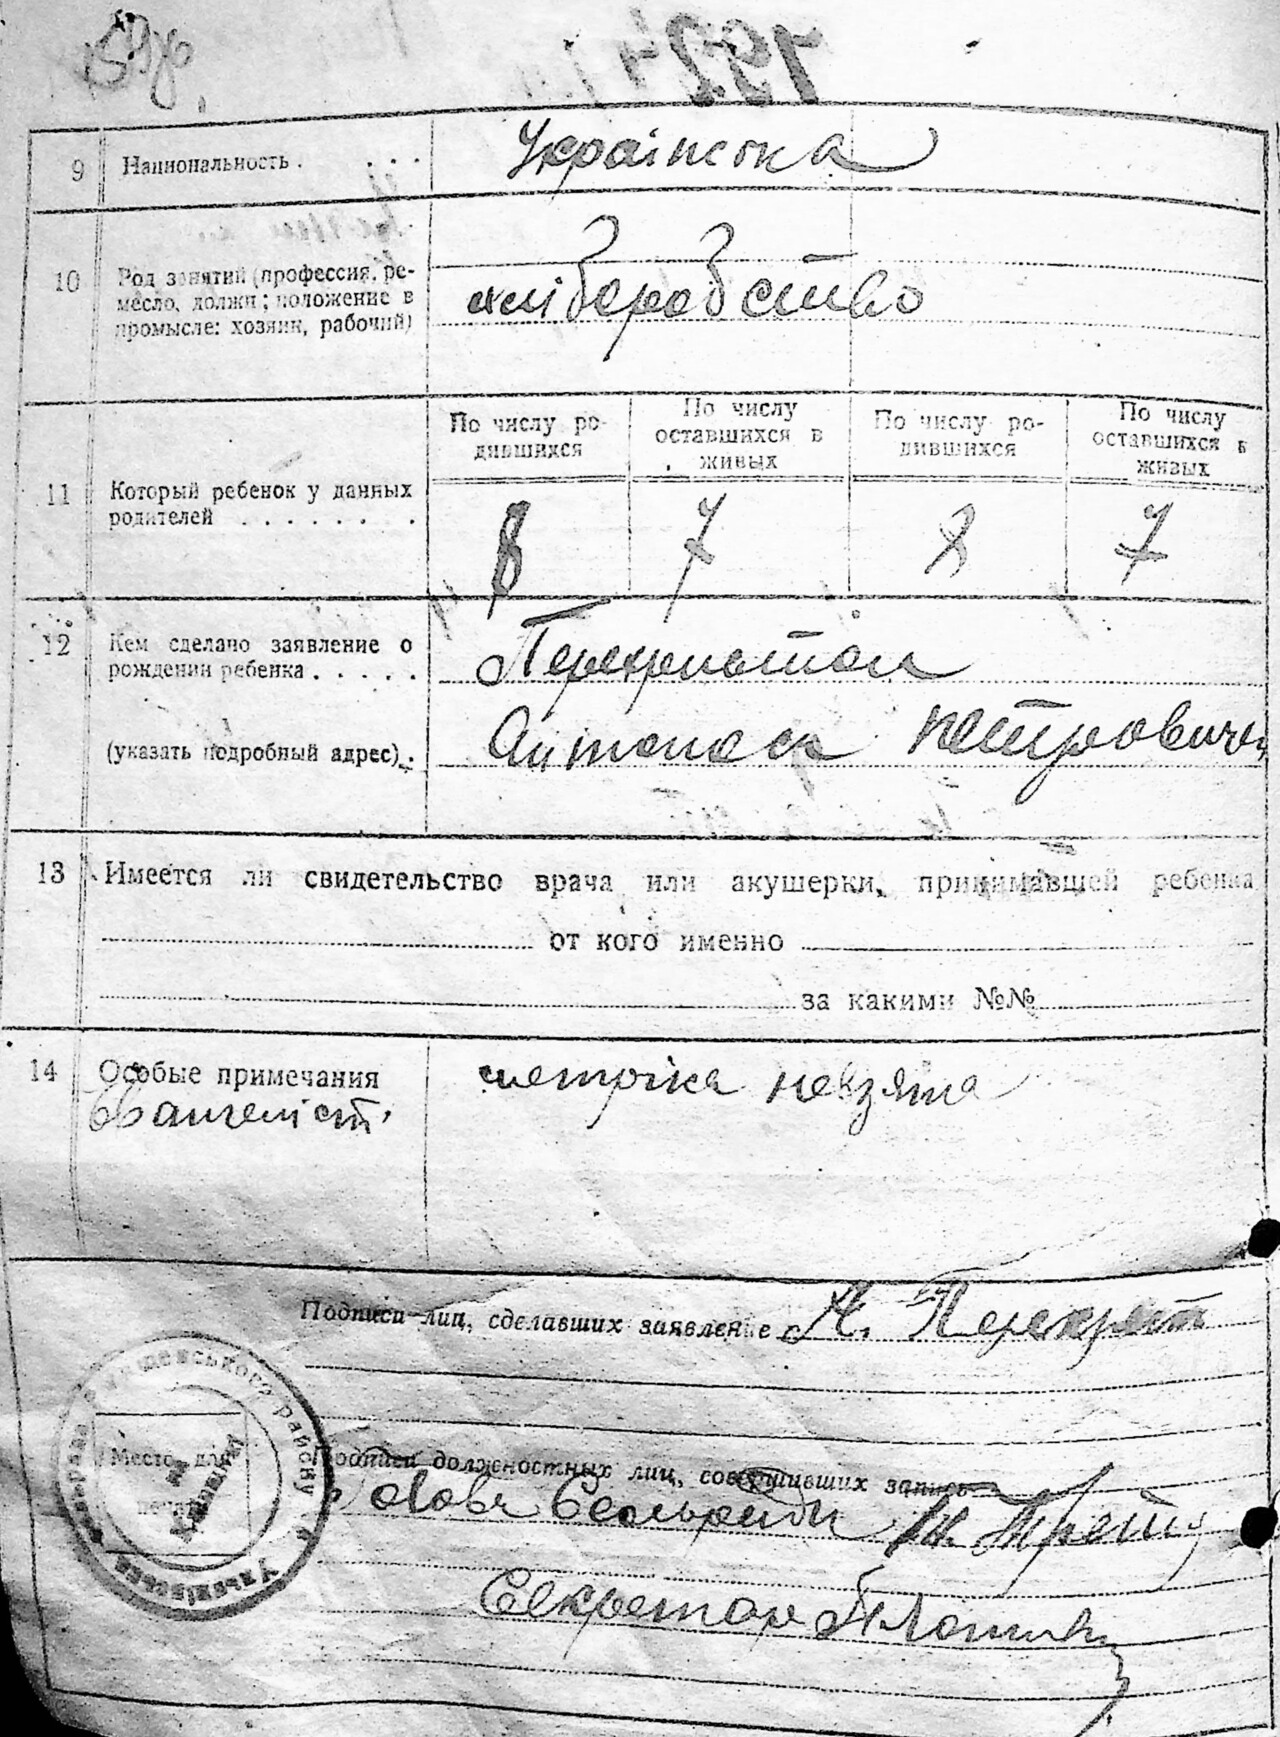 1924
9 Национальность . . . . Українська
10 Род занятий (профессия, ре-
месло, должн; положение в
промысле: хозяин, рабочий)
хліборобство
11 Который ребенок у данных
родителей . . . . . . .
По числу ро-
дившихся
По числу
оставшихся в
живых
По числу ро-
дившихся
По числу
оставшихся в
живых
8 7 8 7
12 Кем сделано заявление о
рождении ребенка . . . . .
(указать подробный адрес) . .
Перехрестом
Антоном Петровичем
13 Имеется ли свидетельство врача или акушерки, принимавшей ребенка
от кого именно
за какими №№
14 Особые примечания
Євангеліст.
метрика невзята
Подписи лиц, сделавших заявление А. Перехрест
Место для
печати
Подписи должностных лиц, совершивших запись
Голова Сельради
Секретар